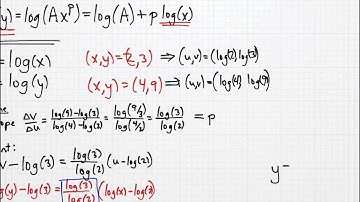 y) = log(Ax^p) = log(A) + p log(x)
= log(x) (x,y) = (2,3) ⇒ (u,v) = (log(2), log(3))
= log(y) (x,y) = (4,9) ⇒ (u,v) = (log(4), log(9))
ope Δv/Δu = (log(9) - log(3))/(log(4) - log(2)) = log(9/3)/log(4/2) = log(3)/log(2) = p
nt:
v - log(3) = log(3)/log(2) (u - log(2))
y =
log(y) - log(3) = log(3)/log(2) (log(x) - log(3)